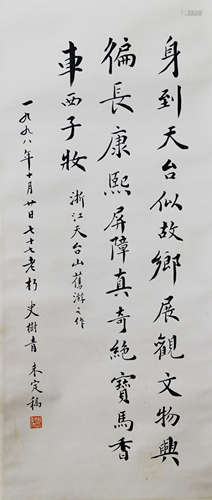 身到天台似故鄉展觀文物興
徧長康熙屏障真奇絕寶馬香
車西子妝
浙江天台山舊游之作
一九九八年十月廿日七十七老朽史樹青未定稿